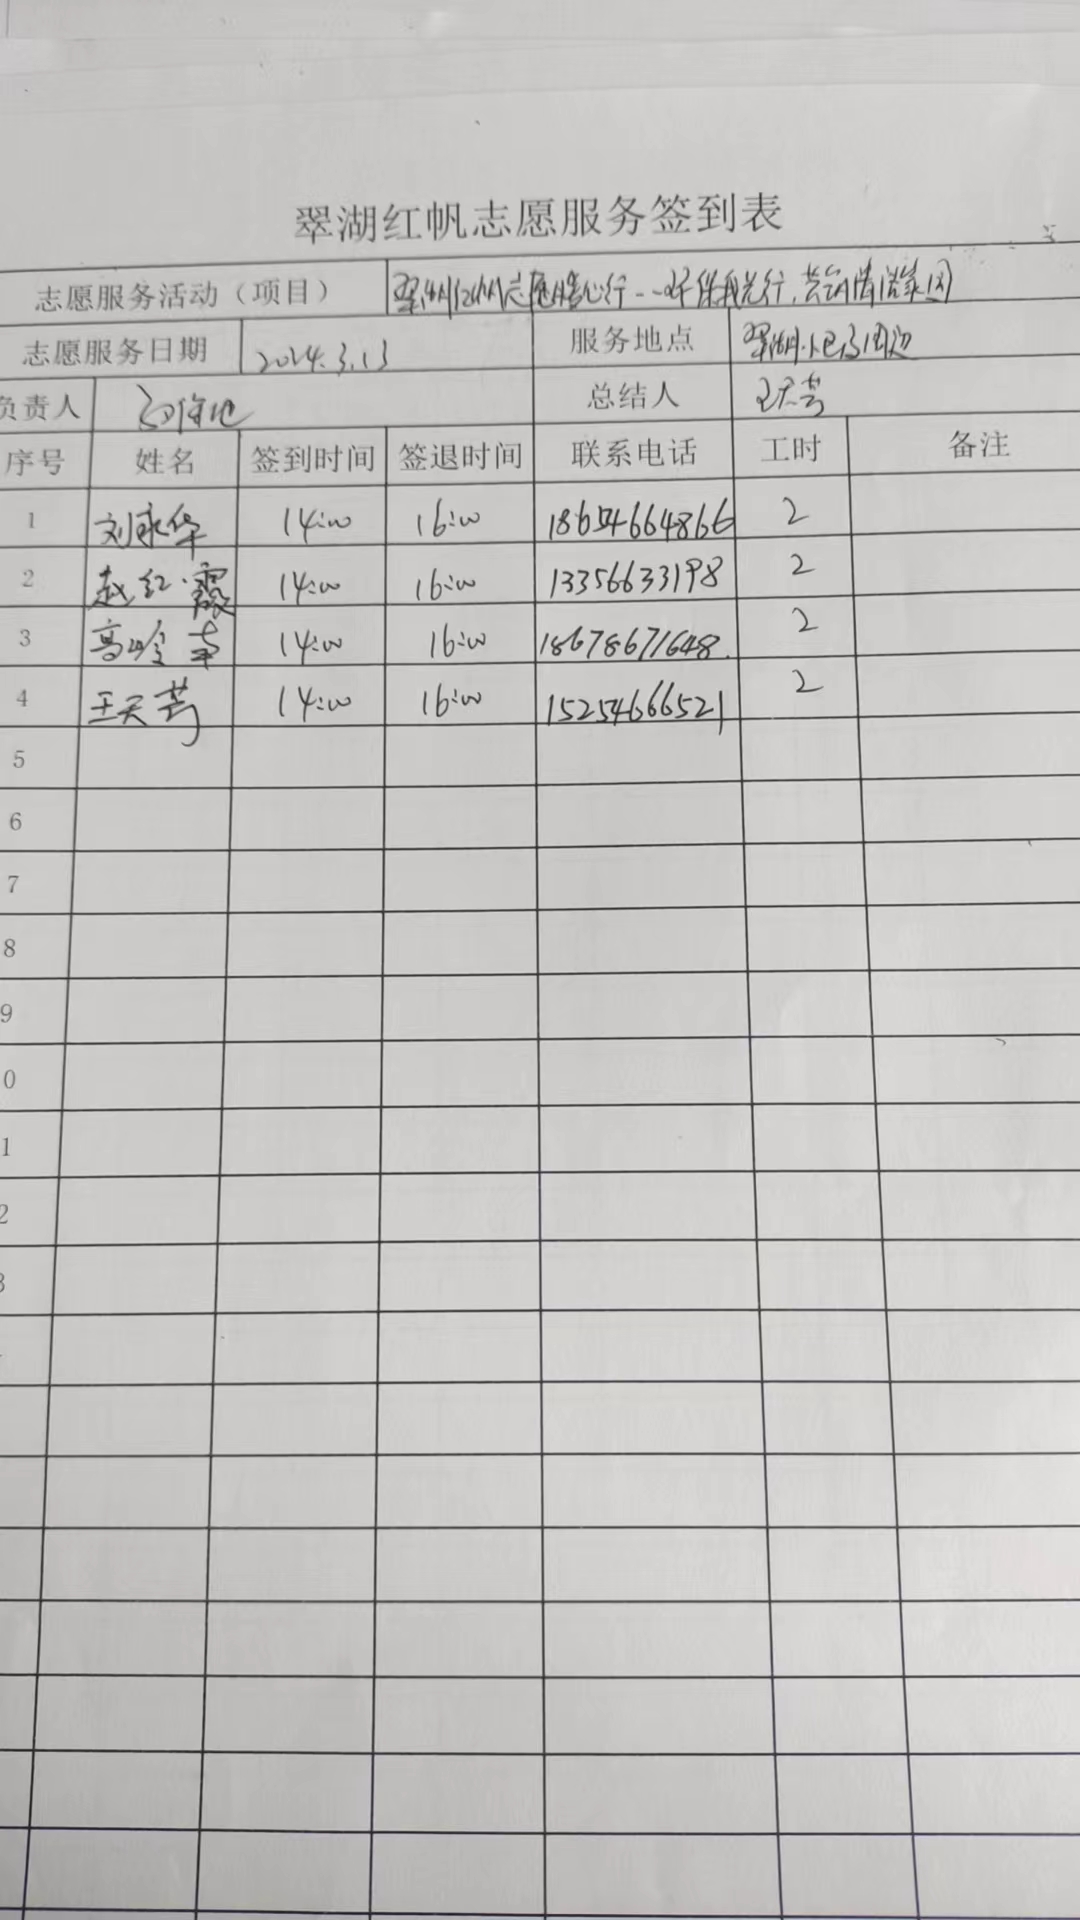 翠湖红帆志愿服务签到表
志愿服务活动（项目） 翠湖红帆志愿暖心行--环保我先行,共筑清洁家园
志愿服务日期 2024.3.13 服务地点 翠湖小区周边
负责人 总结人 王天芳
序号 姓名 签到时间 签退时间 联系电话 工时 备注
1 刘永华 14:00 16:00 18654664866 2
2 赵红霞 14:00 16:00 13356633198 2
3 高岭 14:00 16:00 18678671648. 2
4 王天芳 14:00 16:00 15254666521 2
5
6
7
8
9
0
1
2
3